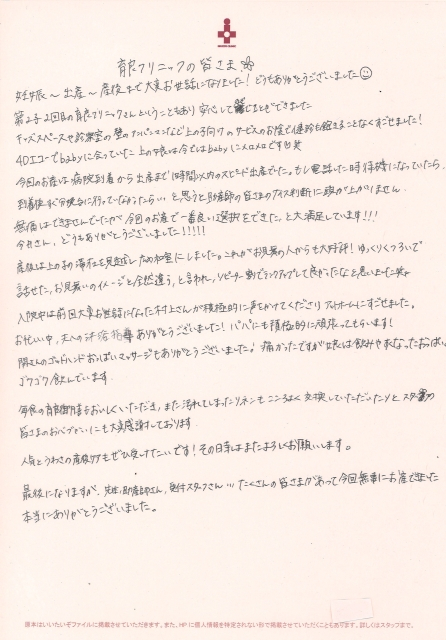 育良クリニックの皆さま
妊娠〜出産〜産後まで大変お世話になりました！どうもありがとうございました
第2子、2回目の育良クリニックさんということもあり安心して過ごすことができました
キッズスペースや診察室の壁のアンパンマンなど上の子向けのサービスのお陰で健診も飽きることなくすごせました！
4Dエコーでbabyに会っていた上の娘は今ではbabyにメロメロです笑
今回のお産は病院到着から出産まで1時間以内のスピード出産でした。もし電話した時 待機になっていたら、
到着後すぐ分娩台に行っていなかったら…と思うと助産師の皆さまのナイス判断に頭が上がりません。
無痛はできませんでしたが 今回のお産で一番良い選択をできた、と大満足しています!!!
今井さん、どうもありがとうございました!!!!!
産後は上の子の滞在を見越し ため和室にしました。これがお見舞の人からも大好評！ゆっくりくつろいで
話せた、お見舞いのイメージと全然違う、と言われ、リピーター割でランクアップして良かったなと思いました笑
入院中は前回大変お世話になった村上さんが積極的に声をかけてくださり アットホームにすごせました。
お忙しい中、夫への沐浴指導ありがとうございました！パパにも積極的に頑張ってもらいます！
関さんのゴッドハンドおっぱいマッサージもありがとうございました！痛かったですが娘は飲みやすくなったおっぱい、
ゴクゴク飲んでいます。
毎食の育良御膳をおいしくいただき、また汚れてしまったリネンもこころよく交換していただいたりと スタッフの
皆さまのおべづかいにも大変感謝しております
人気とうわさの産後ケアもぜひ使いたいです！その日寺はまたよろしくお願いします。
最後になりますが、先生、助産師さん、受付スタッフさん…たくさんの皆さまがあって今回無事にお産できました
本当にありがとうございました。
原本はいいたいぞファイルに掲載させていただきます。また、HPに個人情報を特定されない形で掲載させていただくこともあります。詳しくはスタッフまで。